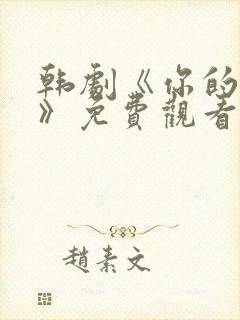 韩劇《你的
》免費觀看
趙素文